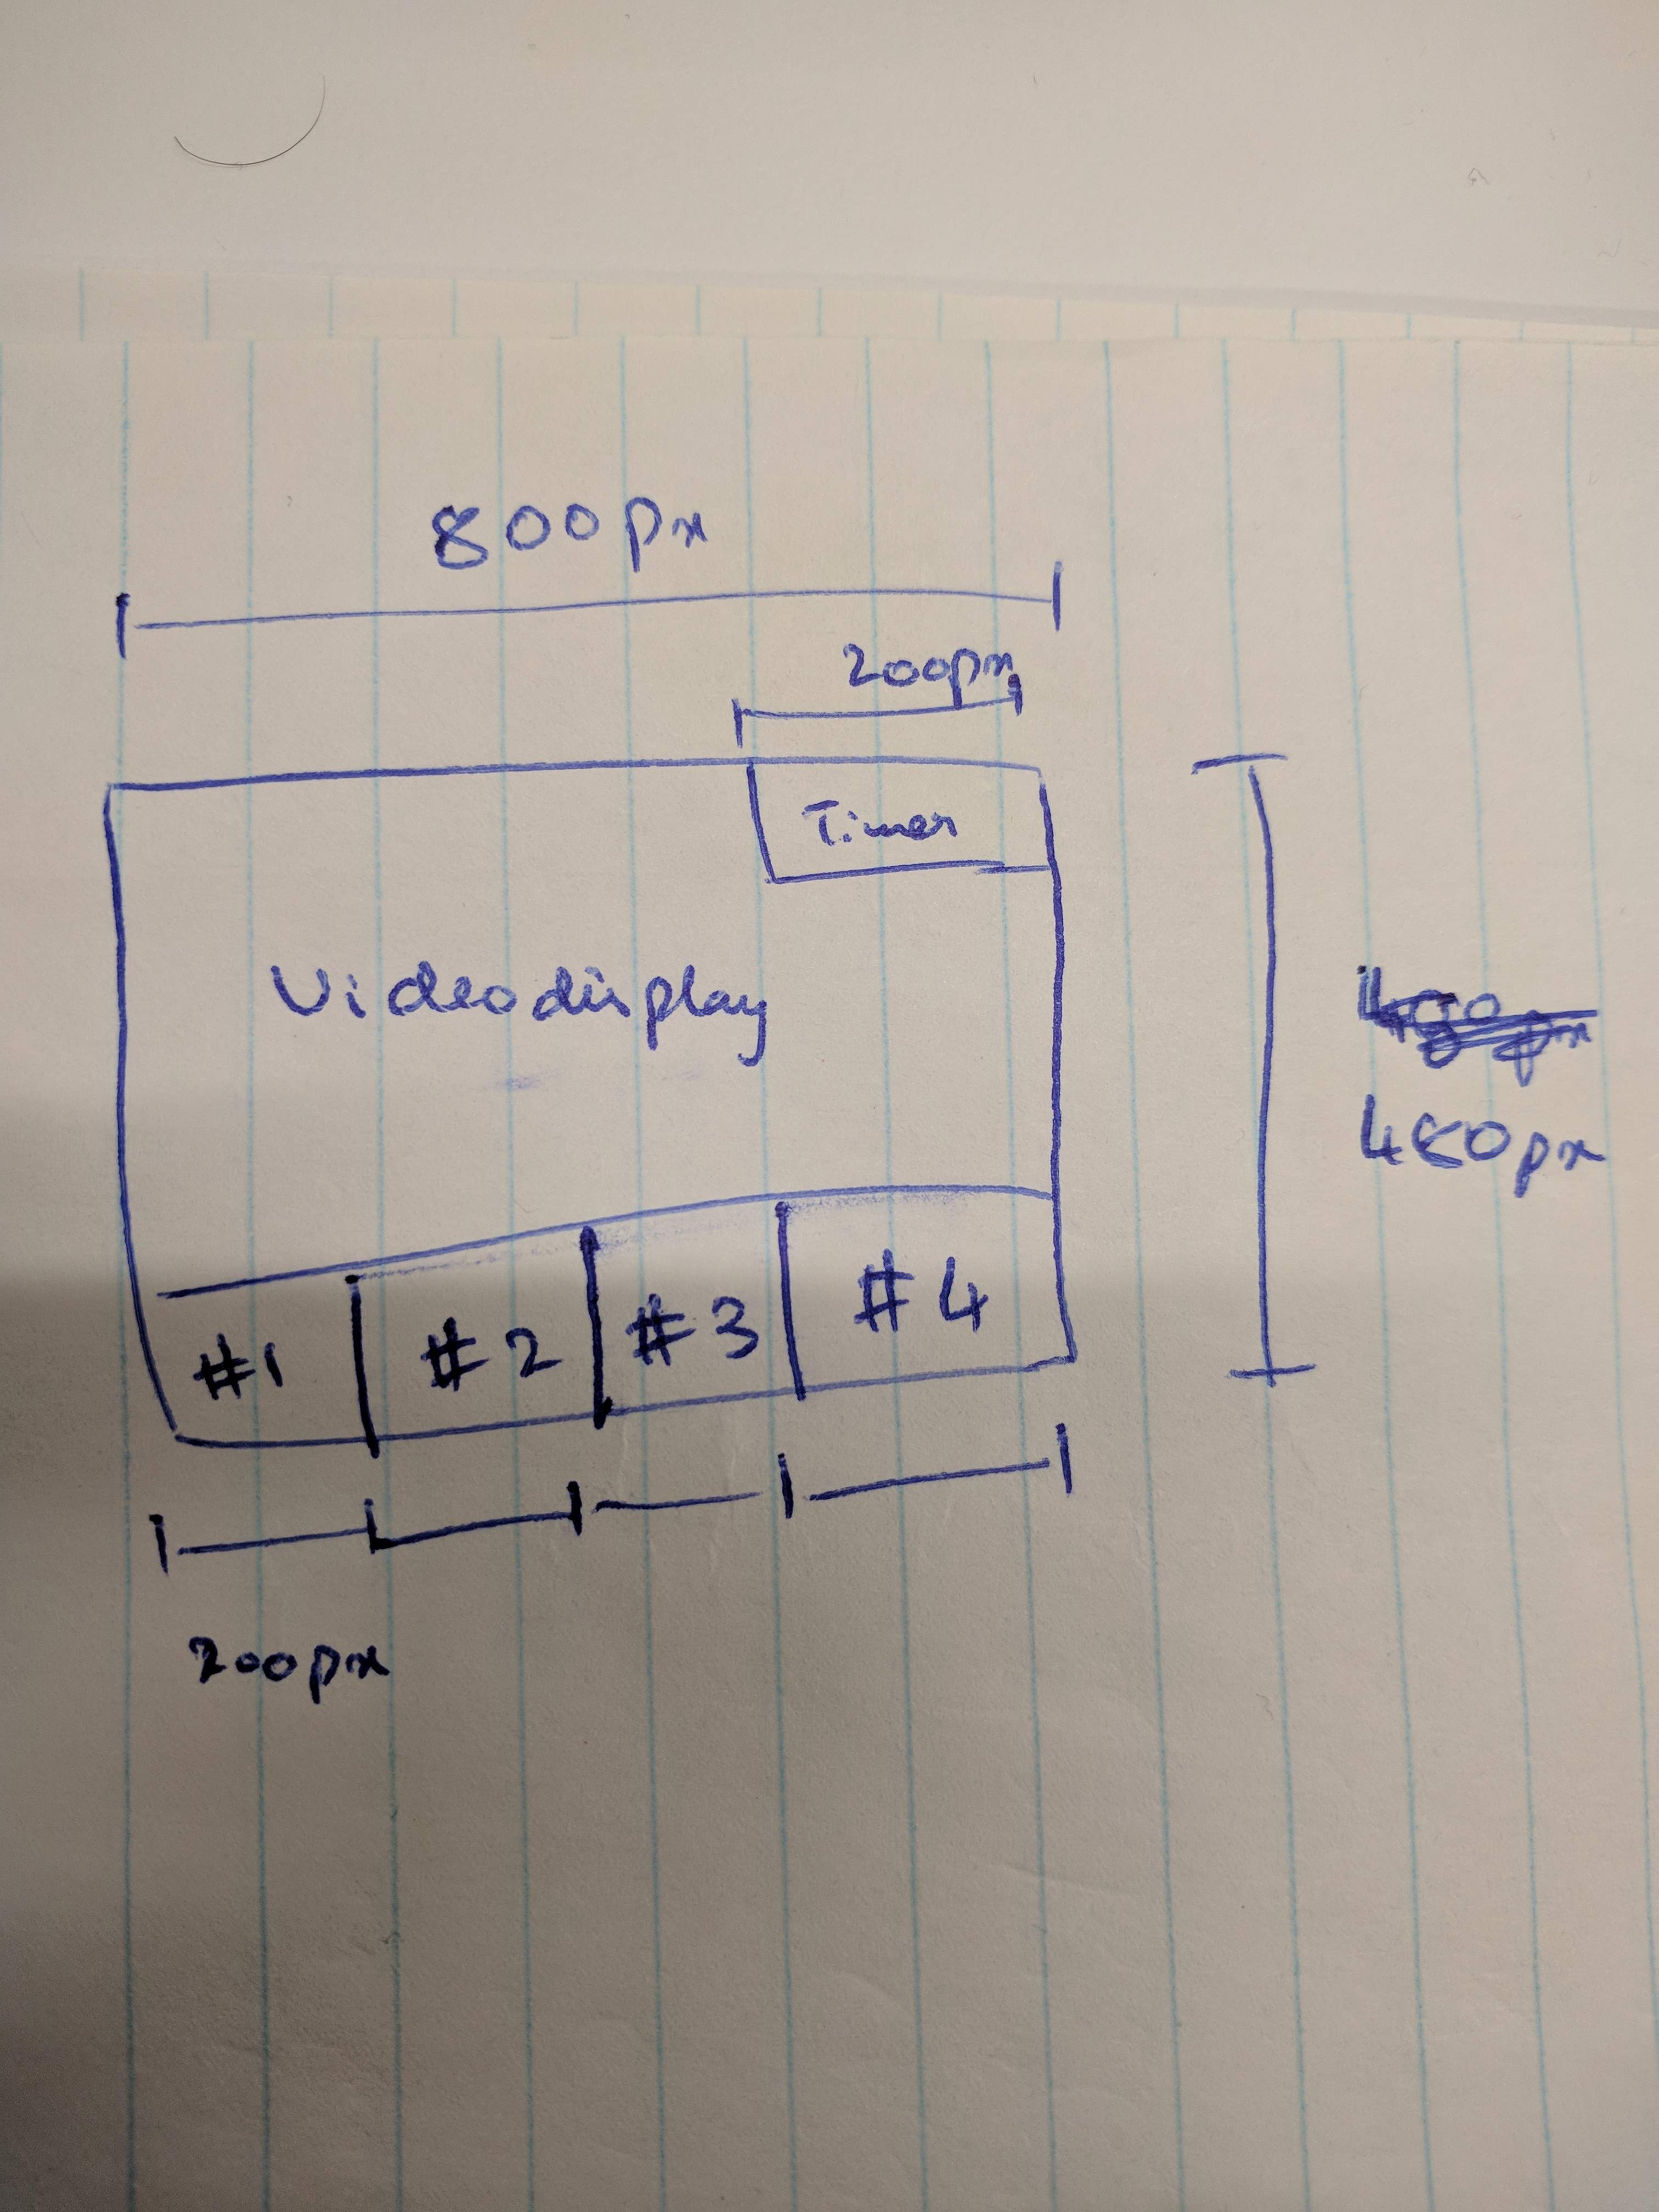 800px
200px
Timer
Videodisplay
480px
#1 #2 #3 #4
200px